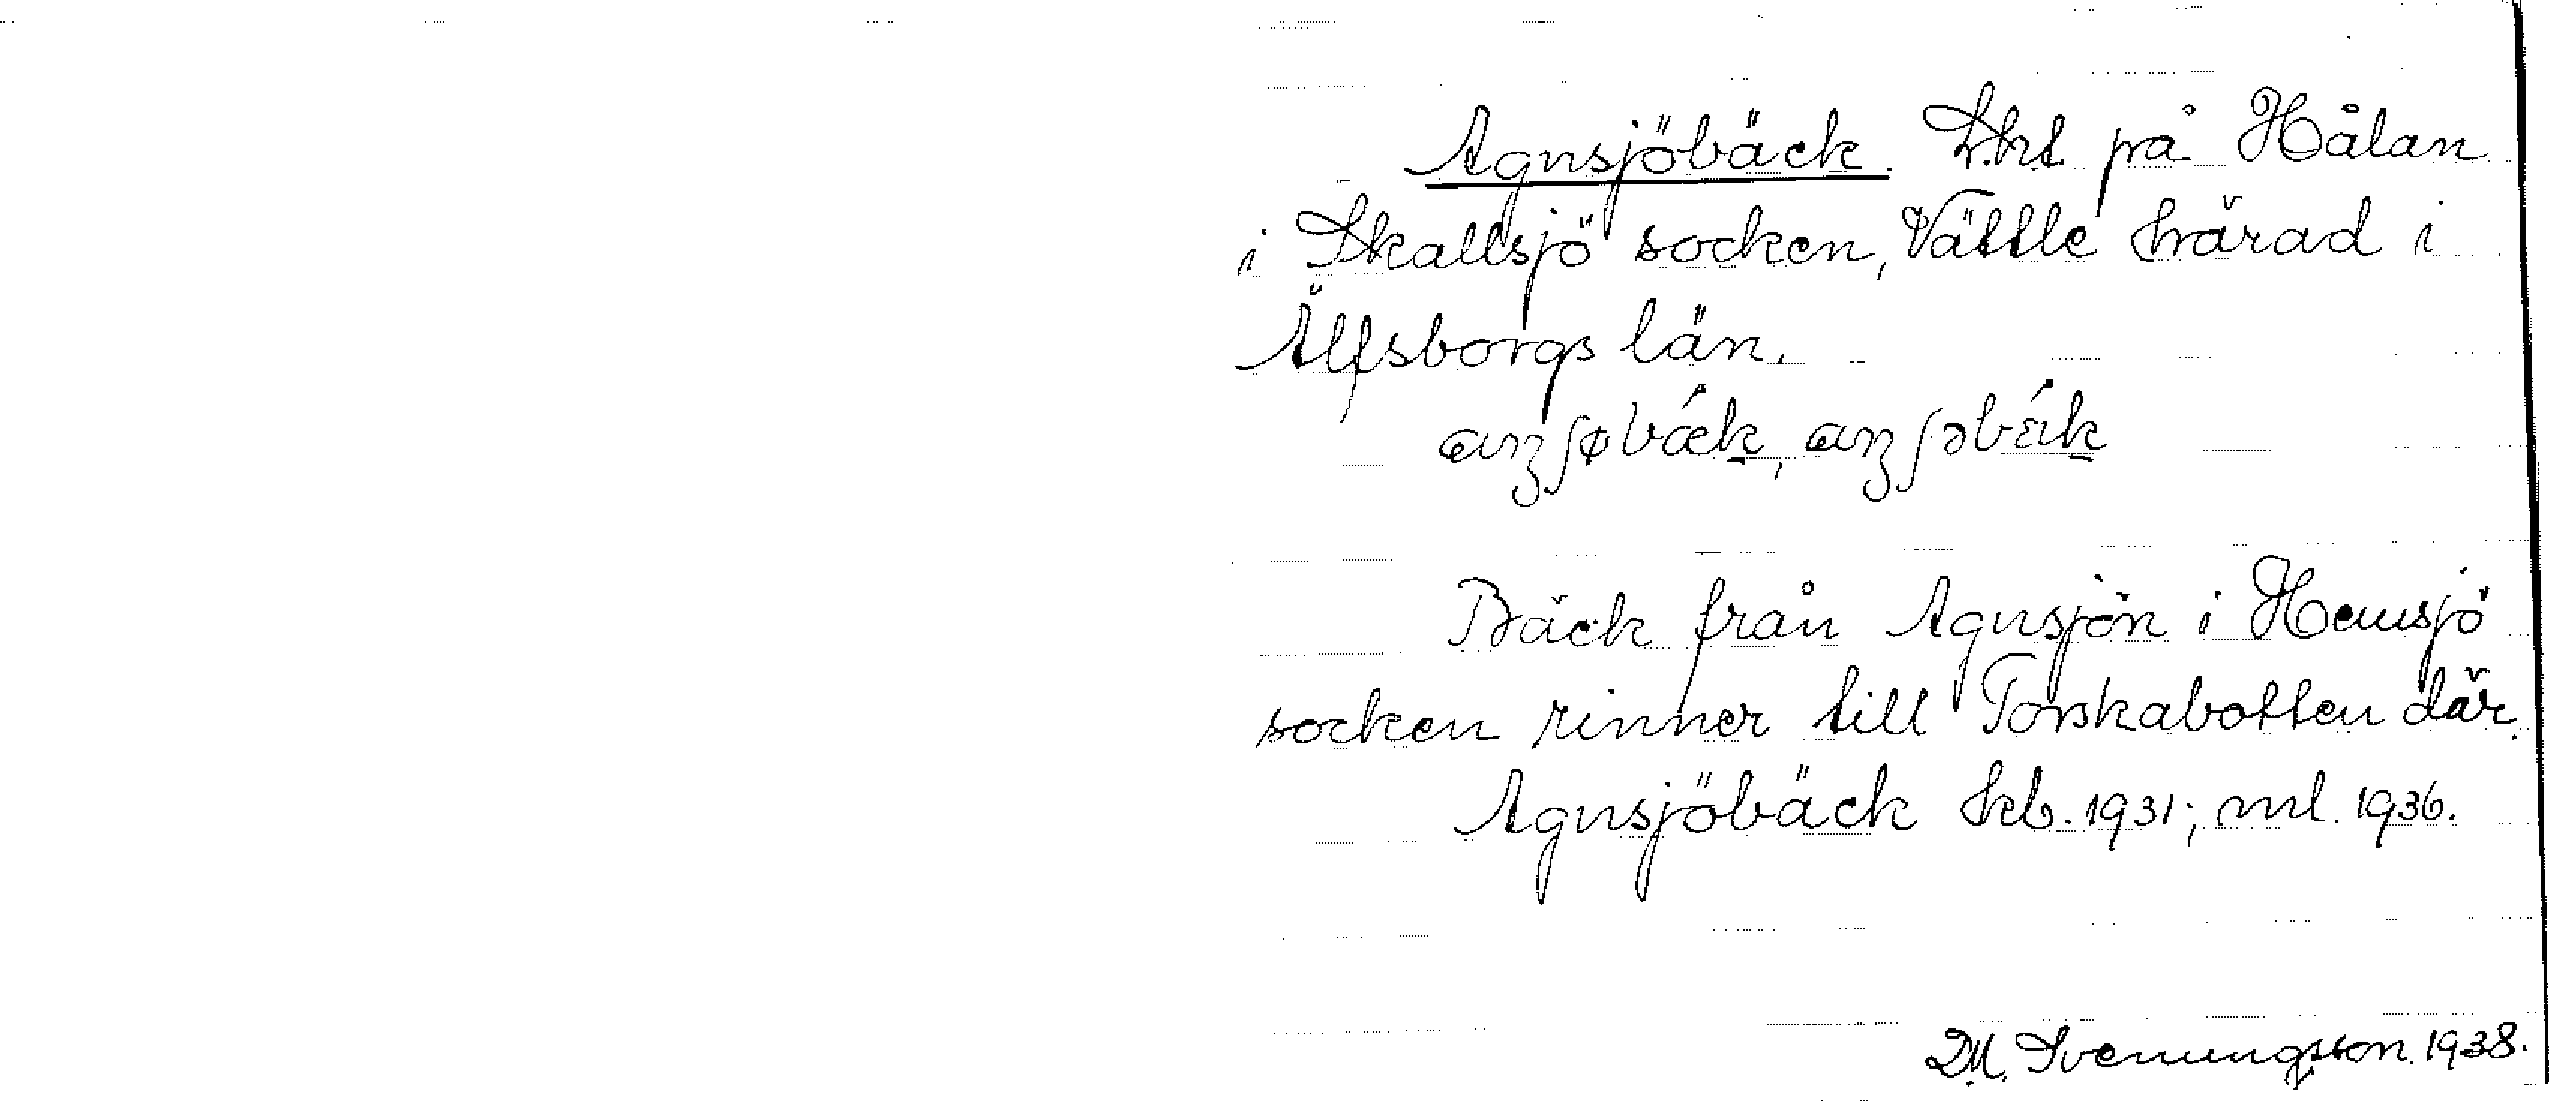 Agnsjöbäck. L.ht på Hålan
i Skallsjö socken, Vättle härad i
Älfsborgs län.
Bäck från Agnsjön i Hemsjö
socken rinner till Torskabotten där.
Agnsjöbäck hkb. 1931; ml. 1936.
D.M. Svenungsson. 1938.